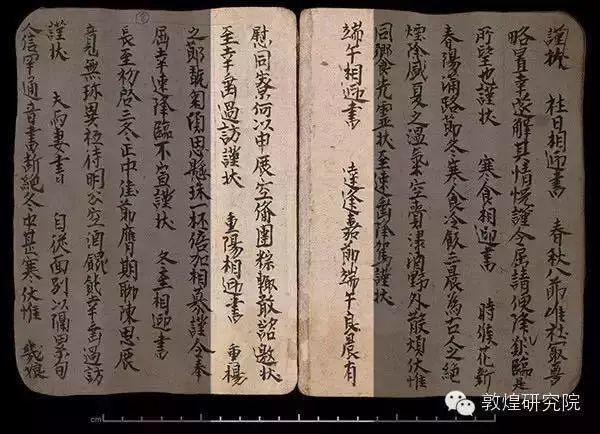 謹狀 社日相迎書 春秋八節唯社最尊
略置幸解其情謹令屈請便降臨是
所望也謹狀 寒食相迎書 時候花新
春陽滿路節冬寒食冷飲三晨為古人之絕
煙除盛夏之溫氣空賷酒野外散煩伏惟
同饗先靈狀至速垂降駕謹狀
端午相迎書 喜逢嘉節端午良晨有
慰同寮何以申展空備團粽輒敢諮邀狀
至幸垂過訪謹狀 重陽相迎書 重楊
之節翫菊傾思懸珠一杯倍加相慕謹令奉
屈幸速降臨不宣謹狀 冬至相迎書
長至初啓三冬正中佳節膺期聊陳思展
竟無珍異秖待明公空酒餛飩幸垂過訪
謹狀 夫与妻書 自從面別以隔累旬
人信罕通音書斷絕冬中甚寒伏惟 幾娘
cm
敦煌研究院